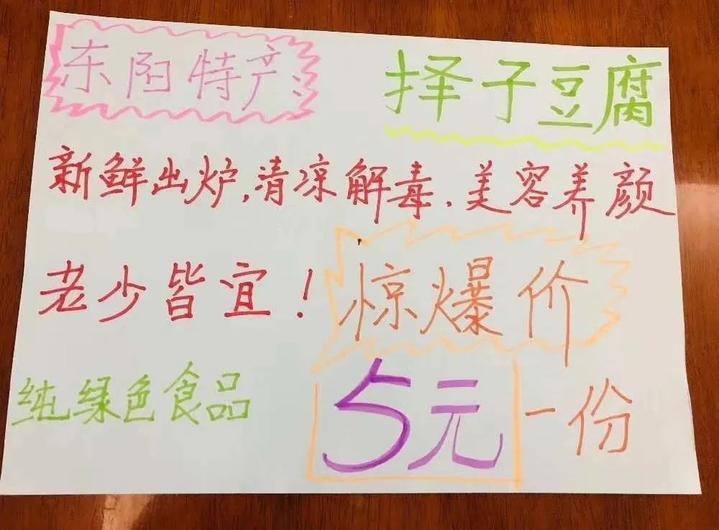 东阳特产:
择子豆腐
新鲜出炉,清凉解毒.美容养颜
老少皆宜!
惊爆价
纯绿色食品
5元一份